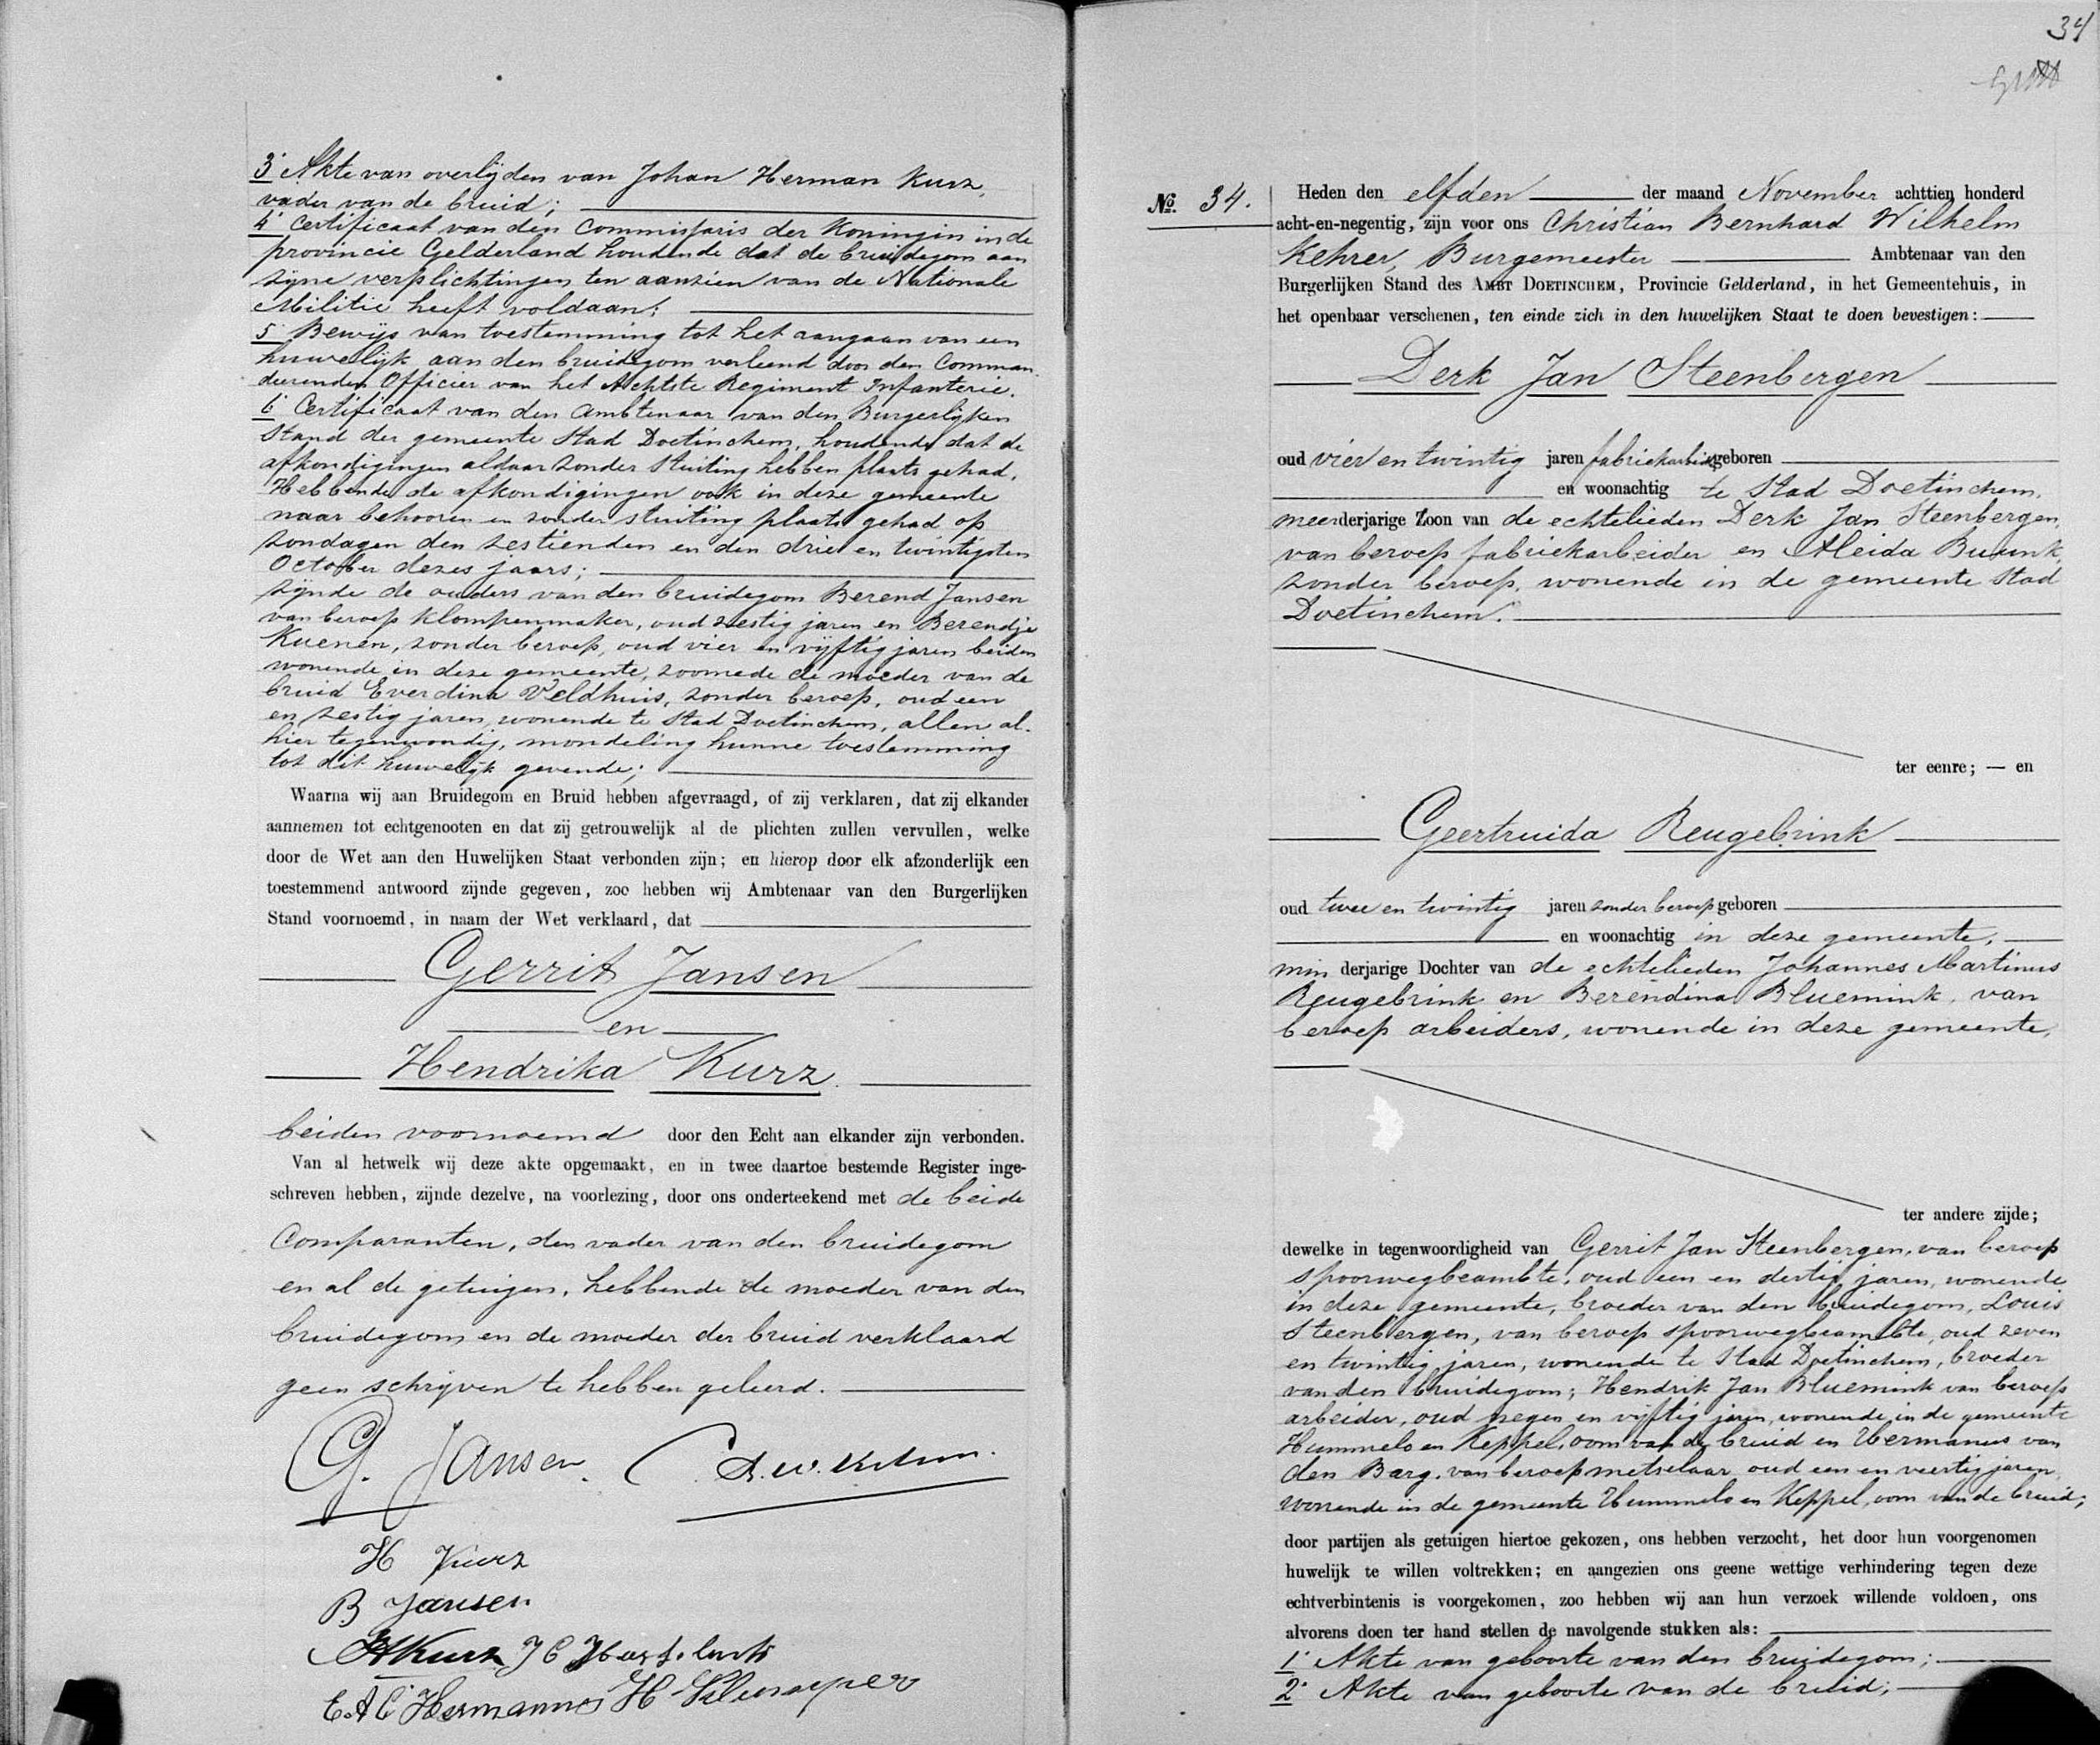 3° Akte van overlijden van Johan Herman Kurz,
vader van de bruid;
4° Certificaat van den Commissaris der Koningin in de
provincie Gelderland houdende dat de bruidegom aan
zijne verplichtingen ten aanzien van de Nationale
Militie heeft voldaan;
5° Bewijs van toestemming tot het aangaan van een
huwelijk aan den bruidegom verleend door den Comman-
deerenden Officier van het Achtste Regiment Infanterie.
6° Certificaat van den Ambtenaar van den Burgerlijken
Stand der gemeente Stad Doetinchem, houdende dat de
afkondigingen aldaar zonder stuiting hebben plaats gehad.
Hebbende de afkondigingen ook in deze gemeente
naar behooren en zonder stuiting plaats gehad op
zondagen den zestienden en den drie en twintigsten
October dezes jaars;
zijnde de ouders van den bruidegom Berend Jansen
van beroep klompenmaker, oud zestig jaren en Berendje
Kuenen, zonder beroep, oud vier en vijftig jaren beiden
wonende in deze gemeente, zoomede de moeder van de
bruid Everdina Veldhuis, zonder beroep, oud een
en zestig jaren, wonende te Stad Doetinchem, allen al-
hier tegenwoordig, mondeling hunne toestemming
tot dit huwelijk gevende;
Waarna wij aan Bruidegom en Bruid hebben afgevraagd, of zij verklaren, dat zij elkander
aannemen tot echtgenooten en dat zij getrouwelijk al de plichten zullen vervullen, welke
door de Wet aan den Huwelijken Staat verbonden zijn; en hierop door elk afzonderlijk een
toestemmend antwoord zijnde gegeven, zoo hebben wij Ambtenaar van den Burgerlijken
Stand voornoemd, in naam der Wet verklaard, dat
Gerrit Jansen
en
Hendrika Kurz
beiden voornoemd door den Echt aan elkander zijn verbonden.
Van al hetwelk wij deze akte opgemaakt, en in twee daartoe bestemde Register inge-
schreven hebben, zijnde dezelve, na voorlezing, door ons onderteekend met de beide
Comparanten, den vader van den bruidegom
en al de getuigen, hebbende de moeder van den
bruidegom en de moeder der bruid verklaard
geen schrijven te hebben geleerd.
G. Jansen.
H Kurz
B Jansen
H Kurz J C
E.A.C. Hermanns H Klumper
34
No. 34.
Heden den elfden der maand November achttien honderd
acht-en-negentig, zijn voor ons Christian Bernhard Wilhelm
Kehrer, Burgemeester Ambtenaar van den
Burgerlijken Stand des AMBT DOETINCHEM, Provincie Gelderland, in het Gemeentehuis, in
het openbaar verschenen, ten einde zich in den huwelijken Staat te doen bevestigen:
Derk Jan Steenbergen
oud vier en twintig jaren fabriekarbeider geboren
en woonachtig te Stad Doetinchem,
meerderjarige Zoon van de echtelieden Derk Jan Steenbergen,
van beroep fabriekarbeider en Aleida Buunk,
zonder beroep, wonende in de gemeente Stad
Doetinchem.
ter eenre; — en
Geertruida Reugebrink
oud twee en twintig jaren zonder beroep geboren
en woonachtig in deze gemeente,
minderjarige Dochter van de echtelieden Johannes Martinus
Reugebrink en Berendina Bluemink, van
beroep arbeiders, wonende in deze gemeente,
ter andere zijde;
dewelke in tegenwoordigheid van Gerrit Jan Steenbergen, van beroep
spoorwegbeambte, oud een en dertig jaren, wonende
in deze gemeente, broeder van den bruidegom, Louis
Steenbergen, van beroep spoorwegbeambte, oud zeven
en twintig jaren, wonende te Stad Doetinchem, broeder
van den bruidegom; Hendrik Jan Bluemink van beroep
arbeider, oud negen en vijftig jaren, wonende in de gemeente
Hummelo en Keppel, oom van de bruid en Hermanus van
den Barg, van beroep metselaar oud een en veertig jaren,
wonende in de gemeente Hummelo en Keppel, oom van de bruid;
door partijen als getuigen hiertoe gekozen, ons hebben verzocht, het door hun voorgenomen
huwelijk te willen voltrekken; en aangezien ons geene wettige verhindering tegen deze
echtverbintenis is voorgekomen, zoo hebben wij aan hun verzoek willende voldoen, ons
alvorens doen ter hand stellen de navolgende stukken als:
1° Akte van geboorte van den bruidegom;
2° Akte van geboorte van de bruid;